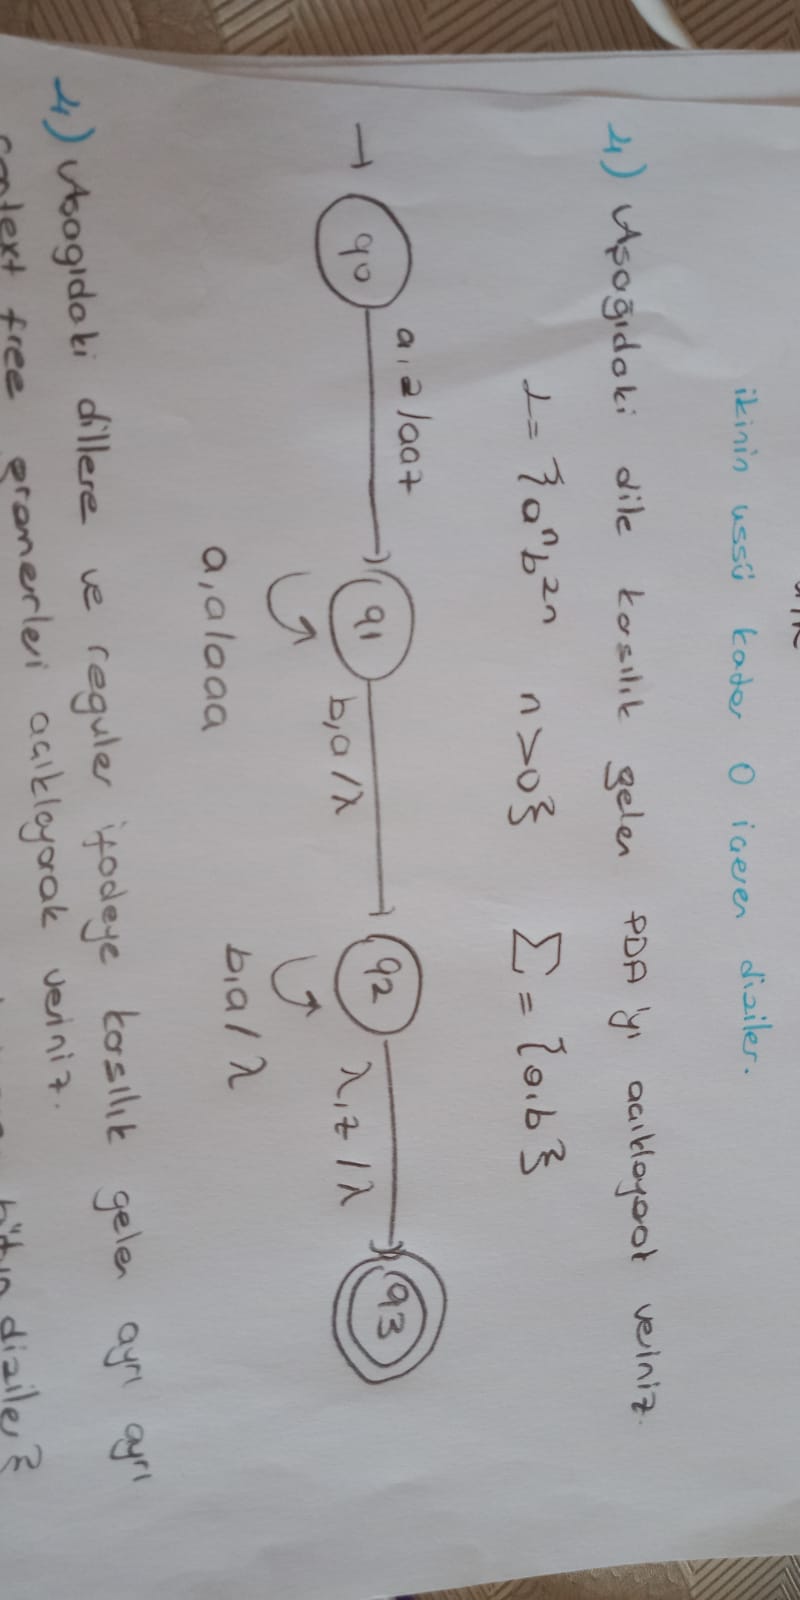 ikinin üssü kadar 0 içeren diziler.
4) Aşağıdaki dile karşılık gelen PDA'yı açıklayarak veriniz.
L = {aⁿb²ⁿ n>0} Σ = {a,b}
a,z/aaz
q0 q1 b,a/λ q2 λ,z/λ q3
a,a/aaa b,a/λ
4) Aşagıdaki dillere ve reguler ifadeye karsılık gelen ayrı ayrı
context free gramerleri acıklayarak veriniz.
bütün diziler}